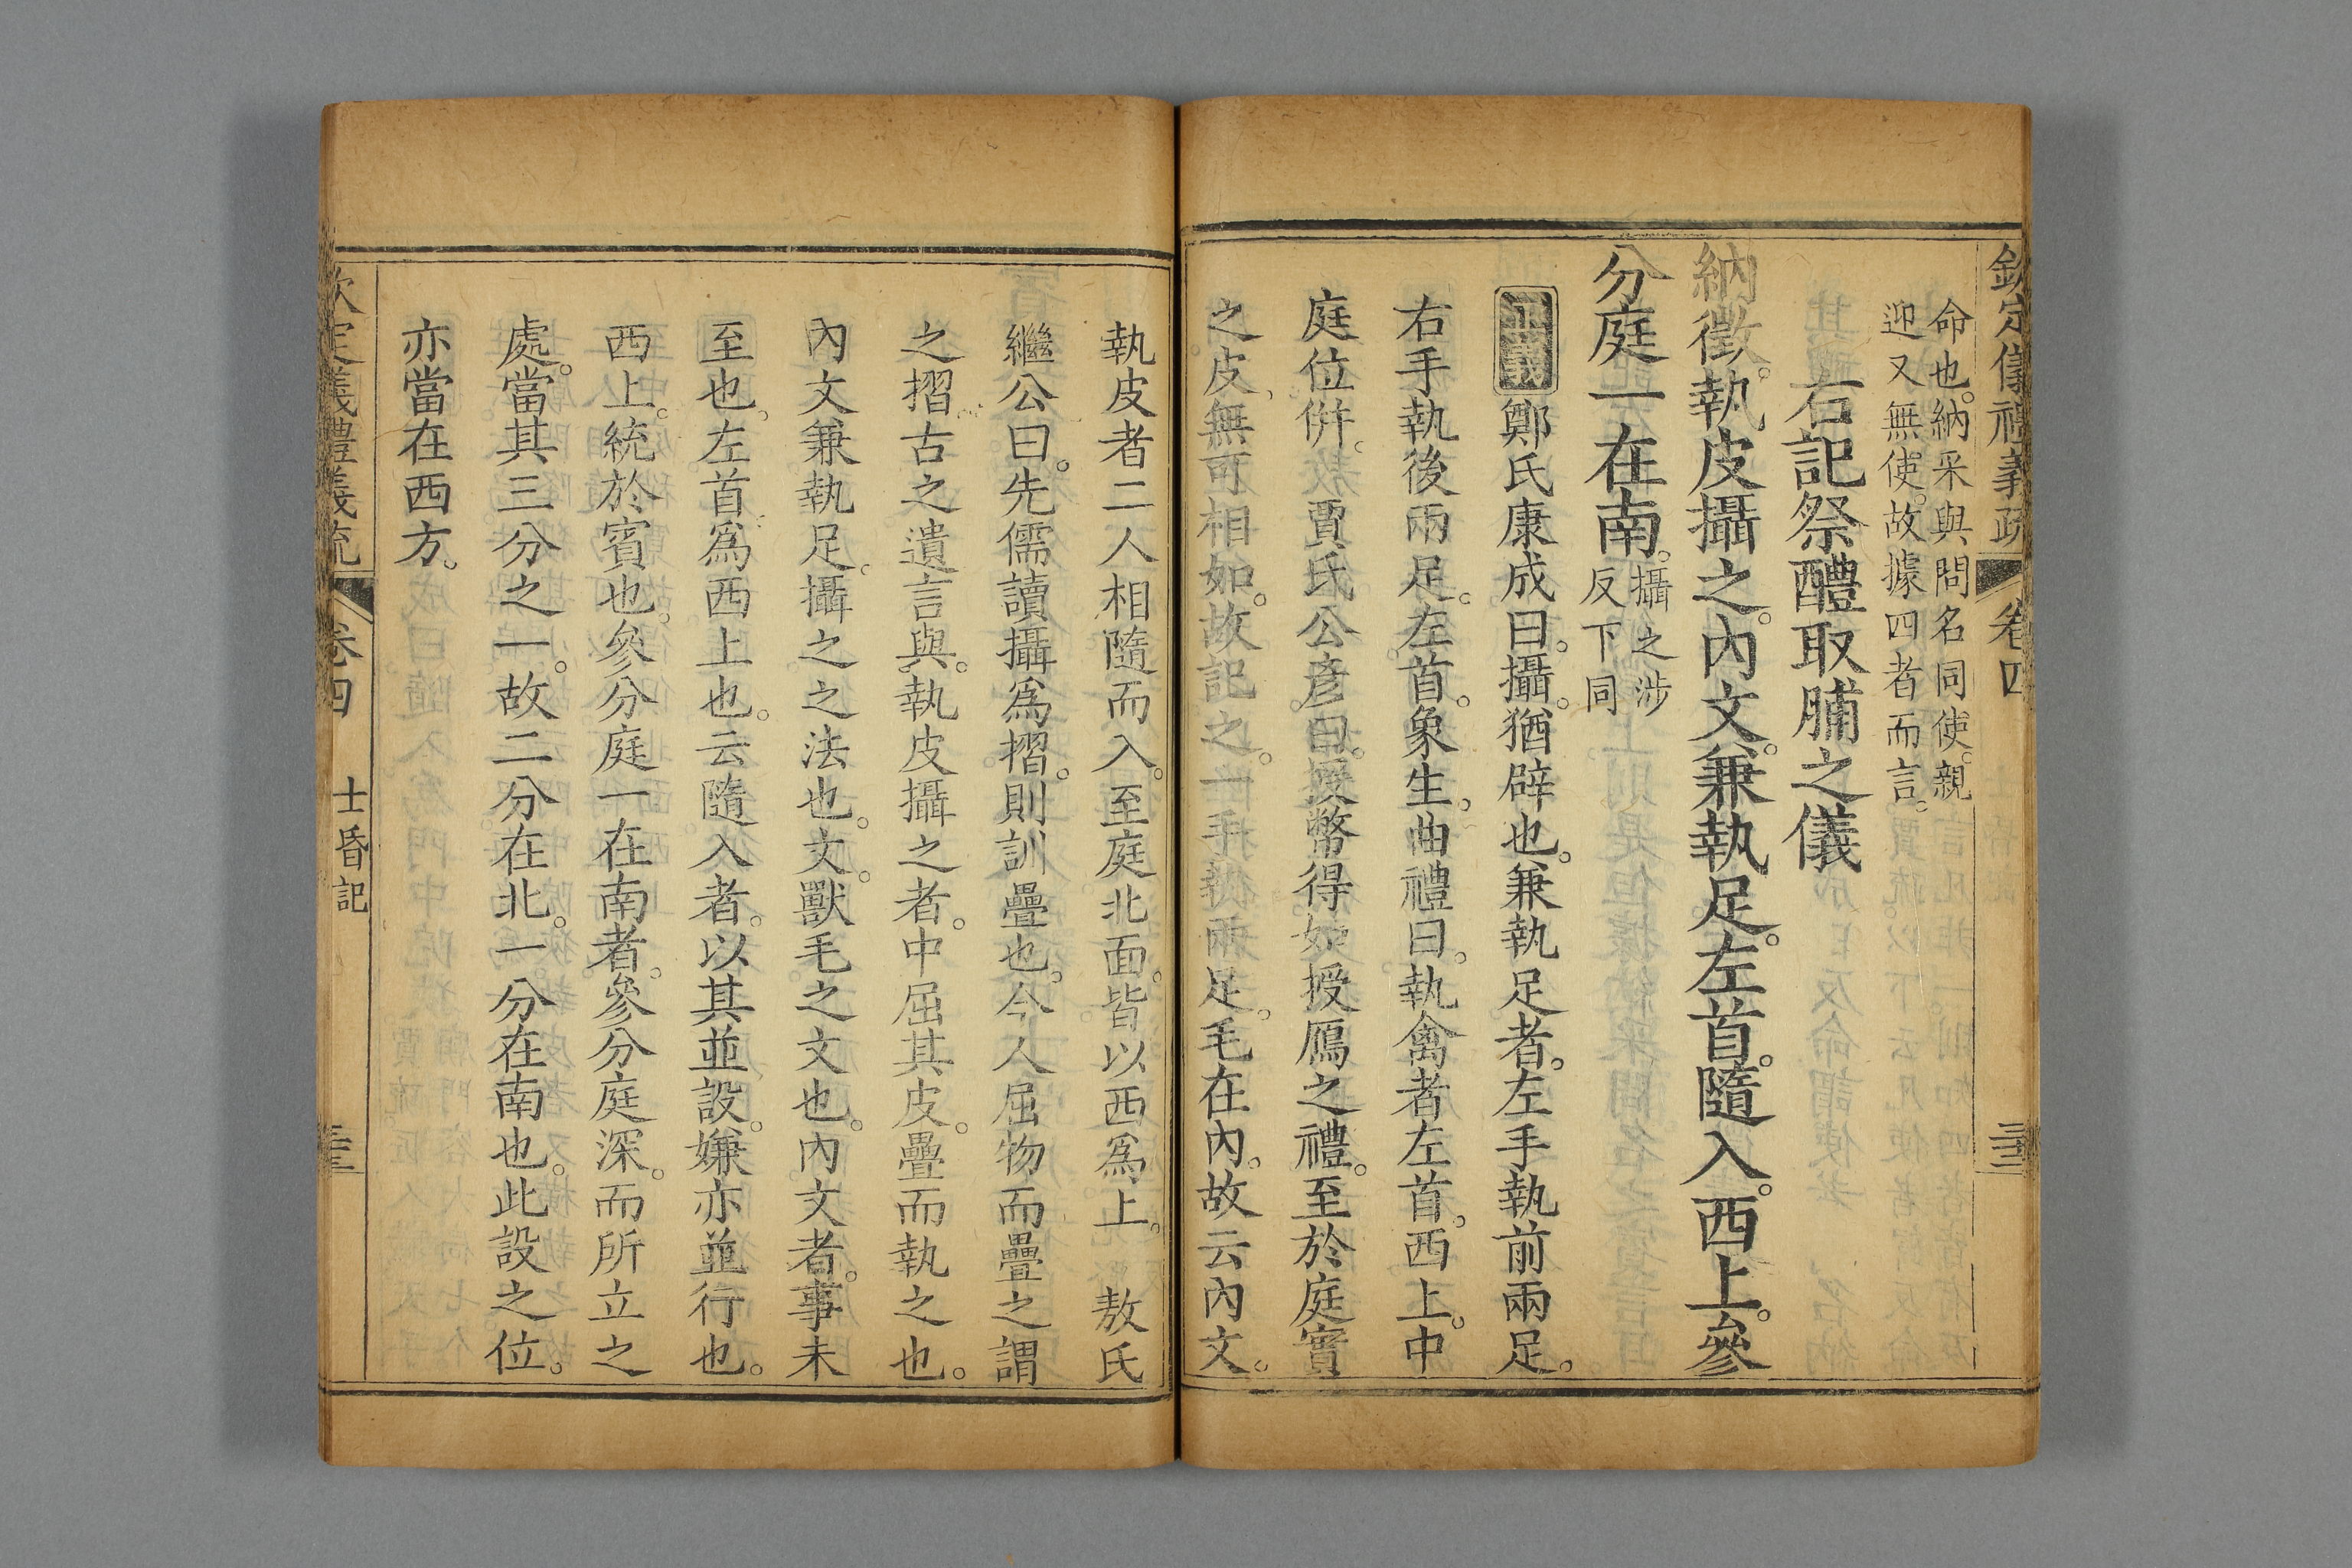 欽定儀禮義疏 卷四 三十三
命也。納采與問名同使。親
迎又無使。故據四者而言。
右記祭醴取脯之儀
納徵。執皮攝之。內文。兼執足。左首。隨入。西上。參
分庭一在南。攝之涉
反下同
正義鄭氏康成曰。攝。猶辟也。兼執足者。左手執前兩足。
右手執後兩足。左首。象生。曲禮曰。執禽者左首。西上。中
庭位併。 賈氏公彥曰。授幣得如授鴈之禮。至於庭實
之皮、無可相如。故記之。一手執兩足。毛在內。故云內文。
執皮者二人相隨而入。至庭北面。皆以西爲上。 敖氏
繼公曰。先儒讀攝爲摺。則訓疊也。今人屈物而疊之謂
之摺。古之遺言與。執皮攝之者。中屈其皮。疊而執之也。
內文兼執足。攝之之法也。文。獸毛之文也。內文者。事未
至也。左首爲西上也。云隨入者。以其並設。嫌亦並行也。
西上。統於賓也。參分庭一在南者。參分庭深。而所立之
處。當其三分之一。故二分在北。一分在南也。此設之位。
亦當在西方。
欽定儀禮義疏 卷四 士昏記